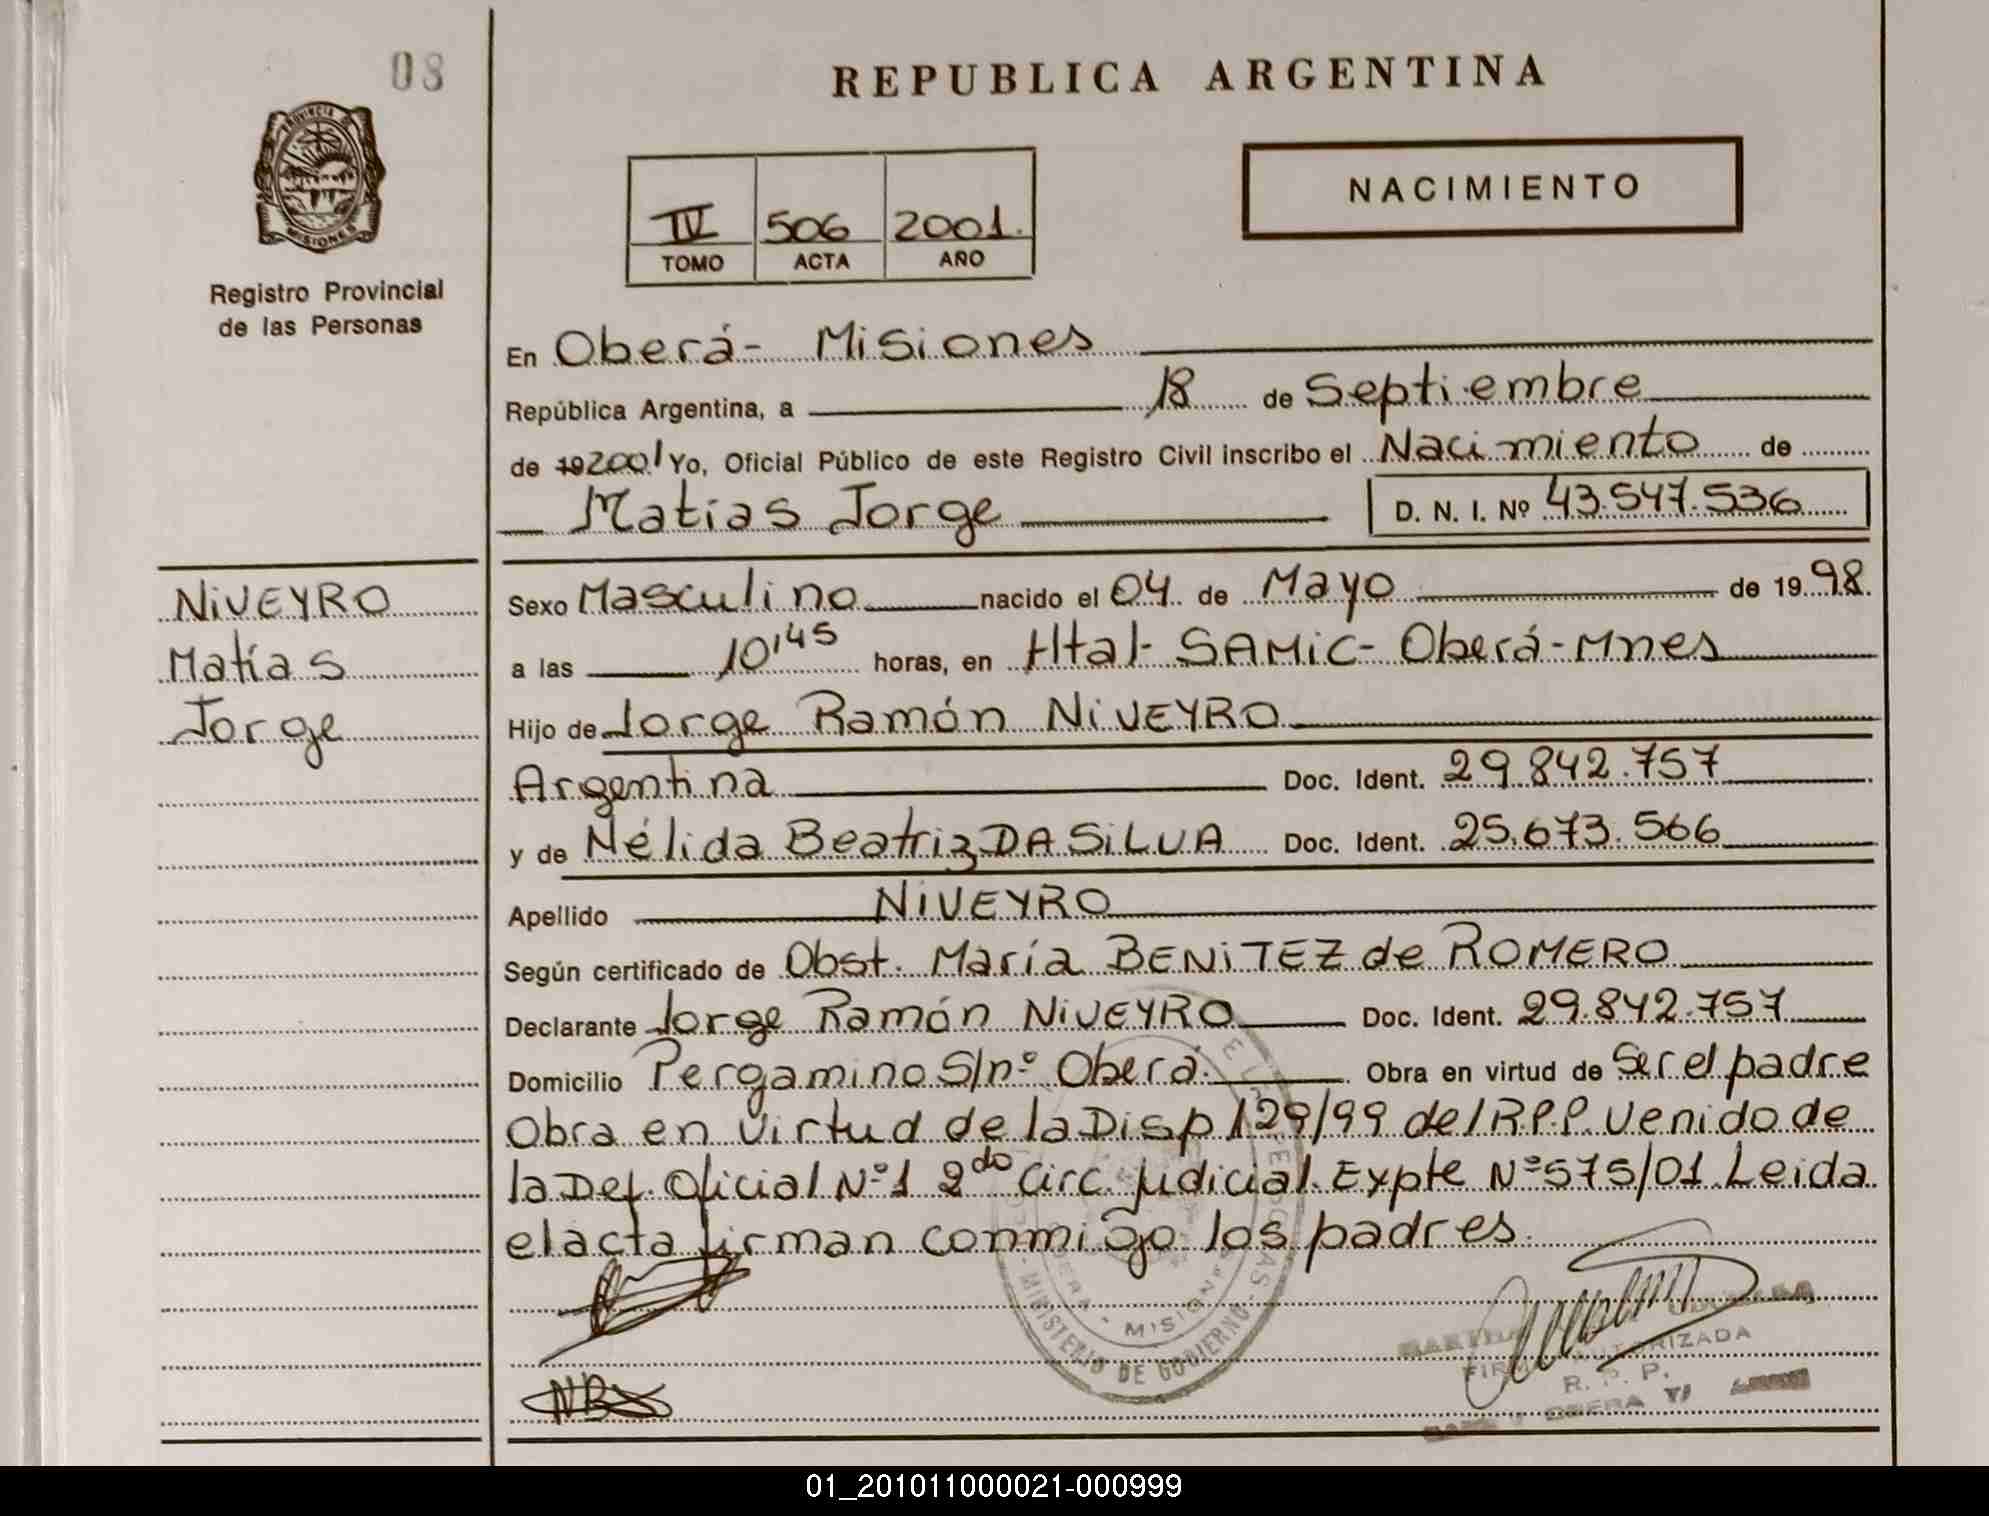 08
PROVINCIA DE
MISIONES
Registro Provincial
de las Personas
REPUBLICA ARGENTINA
NACIMIENTO
IV 506 2001.
TOMO ACTA AÑO
En Oberá- Misiones
República Argentina, a 18 de Septiembre
de 19 2001 Yo, Oficial Público de este Registro Civil inscribo el Nacimiento de
Matias Jorge D. N. I. Nº 43.547.536
NiVEYRO
Matías
Jorge
Sexo Masculino nacido el 04 de Mayo de 19 98.
a las 10'45 horas, en Htal- SAMiC- Oberá-Mnes
Hijo de Jorge Ramón NiVEYRO
Argentina Doc. Ident. 29.842.757
y de Nélida Beatriz DA SiLVA Doc. Ident. 25.673.566
Apellido NiVEYRO
Según certificado de Obst. María BENiTEZ de ROMERO
Declarante Jorge Ramón NiVEYRO Doc. Ident. 29.842.757
Domicilio Pergamino S/nº Oberá. Obra en virtud de Ser el padre
Obra en virtud de la Disp 129/99 del R.P.P. Venido de
la Def. Oficial Nº1 2do Circ. Judicial. Expte Nº575/01. Leida
el acta firman conmigo los padres.
MINISTERIO DE GOBIERNO
OBERA - MISIONES
FIRMA AUTORIZADA
R. P. P.
OBERA
01_201011000021-000999